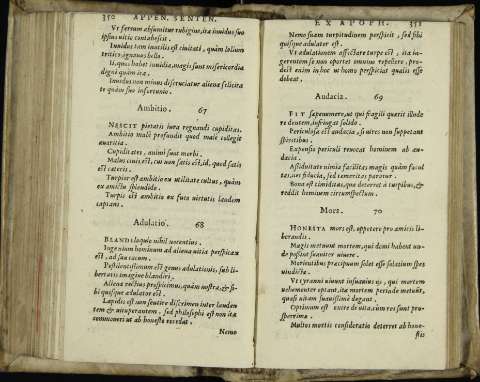 350 APPEN. SENTEN.
Vt ferrum absumitur rubigine, ita inuidus suo
ipsius uitio contabescit.
Inuidus tam inutilis est ciuitati, quàm lolium
tritico, ignauus bello.
Ii, quos habet inuidia, magis sunt misericordia
digni quàm ira.
Inuidus non minus discruciatur aliena felicita
te quàm suo infortunio.
Ambitio. 67
NESCIT pietatis iura regnandi cupiditas.
Ambitio malè profundit quod malè collegit
auaritia.
Cupiditates, animi sunt morbi.
Malus ciuis est, cui non satis est, id, quod satis
est cæteris.
Turpior est ambitio ex uilitate cultus, quàm
ex amictu splendido.
Turpis est ambitio ex futa uirtutis laudem
captans.
Adulatio. 68
BLANDIloquie nihil nocentius.
Ingenium hominum ad aliena uitia perspicax
est, ad sua cæcum.
Pestilentissimum est genus adulationis, sub li-
bertatis imagine blandiri.
Aliena rectius prospicimus, quàm nostra, & si-
bi quisque adulator est.
Lapidis est non sentire discrimen inter laudan
tem & uituperantem. sed philosophi est non ita
commoueri ut ab honesto recedat.
Nemo
EX APOPH. 351
Nemo suam turpitudinem perspicit, sed sibi
quisque adulator est.
Vt adulationem affectare turpe est, ita in-
gerentem se non oportet omnino repellere. pro-
dest enim in hoc ut homo perspiciat qualis esse
debeat.
Audacia. 69
FIT sæpenumero, ut qui fragili querit illide
re dentem, infringat solido.
Periculosa est audacia, si uires non suppetant
spiritibus.
Expensio periculi reuocat hominem ab au-
dacia.
Assiduitate nimia facilitas magis quàm facul
tas, nec fiducia, sed temeritas paratur.
Bona est timiditas, quæ deterret à turpibus, &
reddit hominem circunspectum.
Mors. 70
HONESTA mors est, oppetere pro amicis li-
berandis.
Magis metuunt mortem, qui domi habent un-
de possint suauiter uiuere.
Morientibus præcipuum solet esse solatium spes
uindictæ.
Vt tyranni uiuunt inuisuris ij, qui mortem
uehementer optant, ita mortem periude metuūt,
quasi uitam suauissimè degant.
Optimum est exire de uita, cùm res sunt pro-
sperrimæ.
Multos mortis consideratio deterret ab hone-
stis